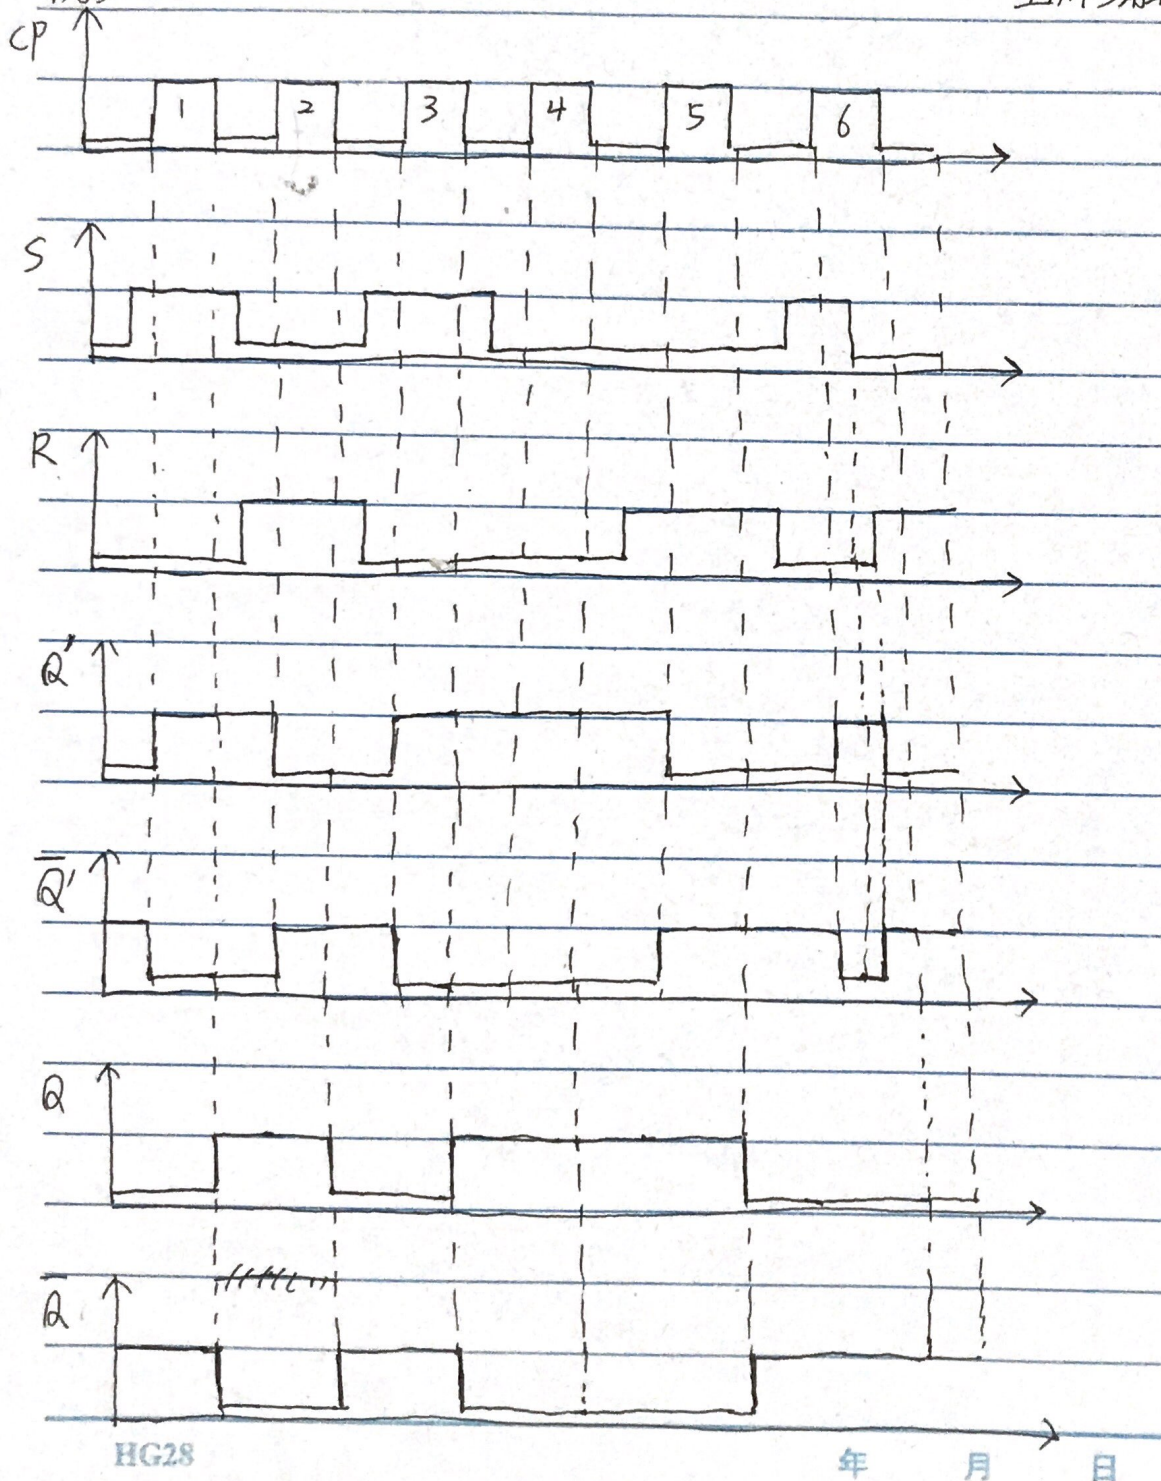 CP
1 2 3 4 5 6
S
R
Q'
Q̅'
Q
Q̅
HG28 年 月 日